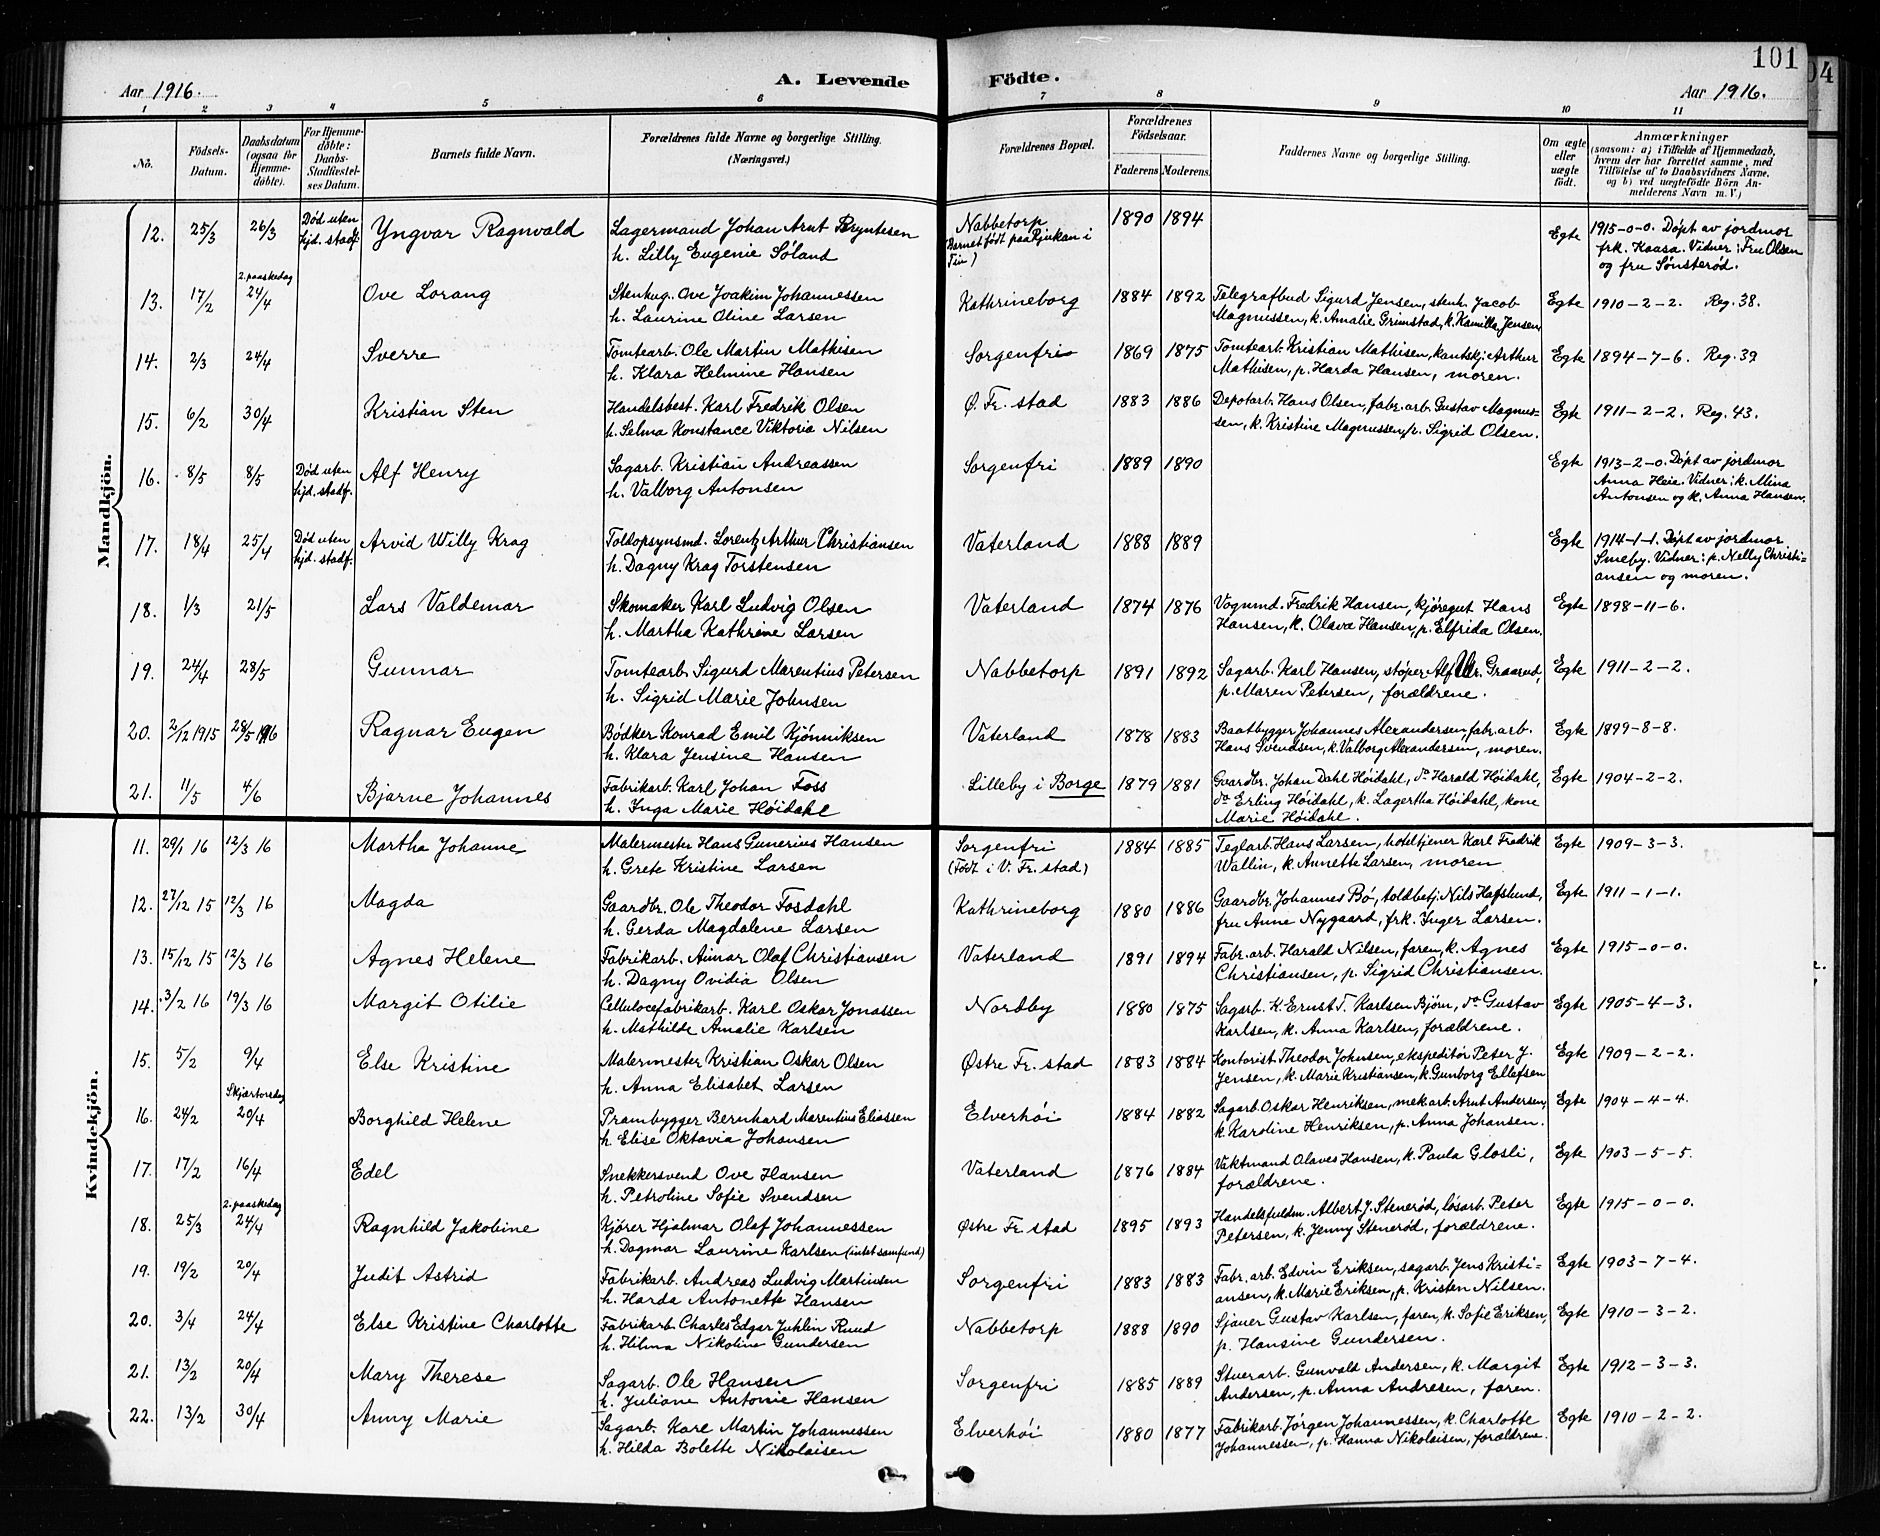 101
04
Aar 1916.
A. Levende
Födte.
Aar 1916.
1 2 3 4 5 6 7 8 9 10 11
No.
Födsels-Datum.
Daabsdatum (ogsaa for Hjemme-döbte).
For Hjemme-döbte: Daabs-Stadfæstel-ses Datum.
Barnets fulde Navn.
Forældrenes fulde Navne og borgerlige Stilling. (Næringsvei.)
Forældrenes Bopæl.
Forældrenes Födselsaar.
Faderens Moderens
Faddernes Navne og borgerlige Stilling.
Om ægte eller uægte födt.
Anmærkninger
(saasom: a) i Tilfælde af Hjemmedaab, hvem der har forrettet samme, med Tilföielse af to Daabsvidners Navne, og b) ved uægtefödte Börn An-melderens Navn m. V.)
Mandkjön.
12. 25/3 26/3 Död uten hjd. stadf. Yngvar Ragnvald Lagermand Johan Arnt Bryntesen Nabbetorp 1890 1894 Egte 1915-0-0. Døpt av jordmor
h. Lilly Eugenie Søland (Barnet født paa Rjukan i Tin) frk. Kaasa. Vidner: Fru Olsen
og fru Sønsterød.
13. 17/2 2. paaskedag 24/4 Ove Lorang Stenhug. Ove Joakim Johannessen Kathrineborg 1884 1892 Telegrafbud Sigurd Jensen, stenh. Jacob Egte 1910-2-2. Reg. 38.
h. Laurine Oline Larsen Magnussen, k. Amalie Grimstad, k. Kamilla Jensen
14. 2/3 24/4 Sverre Tomtearb. Ole Martin Mathisen Sorgenfri 1869 1875 Tomtearb. Kristian Mathisen, kantskj. Arthur Egte 1894-7-6. Reg. 39
h. Klara Helmine Hansen Mathisen, p. Harda Hansen, moren.
15. 6/2 30/4 Kristian Sten Handelsbest. Karl Fredrik Olsen Ø. Fr. stad 1883 1886 Depotarb. Hans Olsen, fabr. arb. Gustav Magnus- Egte 1911-2-2. Reg. 43.
h. Selma Konstance Viktoria Nilsen sen, k. Kristine Magnussen, p. Sigrid Olsen.
16. 8/5 8/5 Död uten hjd. stadf. Alf Henry Sagarb. Kristian Andreassen Sorgenfri 1889 1890 Egte 1913-2-0. Døpt av jordmor
h. Valborg Antonsen Anna Heie. Vidner: k. Mina
Antonsen og k. Anna Hansen.
17. 18/4 25/4 Död uten hjd. stadf. Arvid Willy Krag Toldopsynsmd. Lorentz Arthur Christiansen Vaterland 1888 1889 Egte 1914-1-1. Døpt av jordmor
h. Dagny Krag Torstensen Smeby. Vidner: p. Nelly Christi-
ansen og moren.
18. 1/3 21/5 Lars Valdemar Skomaker Karl Ludvig Olsen Vaterland 1874 1876 Vognmd. Fredrik Hansen, kjøregut Hans Egte 1898-11-6.
h. Martha Kathrine Larsen Hansen, k. Olava Hansen, p. Elfrida Olsen.
19. 24/4 28/5 Gunnar Tomtearb. Sigurd Marentius Petersen Nabbetorp 1891 1892 Sagarb. Karl Hansen, støper Alf Graarud, Egte 1911-2-2.
h. Sigrid Marie Johnsen p. Maren Petersen, forældrene.
20. 2/12 1915 28/5 1916 Ragnar Eugen Bødker Konrad Emil Kjønniksen Vaterland 1878 1883 Baatbygger Johannes Alexandersen, fabr. arb. Egte 1899-8-8.
h. Klara Jensine Hansen Hans Svendsen, k. Valborg Alexandersen, moren.
21. 11/5 4/6 Bjarne Johannes Fabrikarb. Karl Johan Foss Lilleby i Borge 1879 1881 Gaardbr. Johan Dahl Høidahl, do Harald Høidahl, Egte 1904-2-2.
h. Inga Marie Høidahl do Erling Høidahl, k. Lagertha Høidahl, kone
Marie Høidahl.
Kvindekjön.
11. 29/1 16 12/3 16 Martha Johanne Malermester Hans Gunerius Hansen Sorgenfri 1884 1885 Teglarb. Hans Larsen, hoteltjener Karl Fredrik Egte 1909-3-3.
h. Grete Kristine Larsen (Født i V. Fr. stad) Wallin, k. Annette Larsen, moren
12. 27/12 15 12/3 16 Magda Gaardbr. Ole Theodor Fosdahl Kathrineborg 1880 1886 Gaardbr. Johannes Bø, toldbetj. Nils Hafslund, Egte 1911-1-1.
h. Gerda Magdalene Larsen fru Anne Nygaard, frk. Inger Larsen.
13. 15/12 15 12/3 16 Agnes Helene Fabrikarb. Aimar Olaf Christiansen Vaterland 1891 1894 Fabr. arb. Harald Nilsen, faren, k. Agnes Egte 1915-0-0.
h. Dagny Ovidia Olsen Christiansen, p. Sigrid Christiansen.
14. 3/2 16 19/3 16 Margit Otilie Cellulocefabrikarb. Karl Oskar Jonassen Nordby 1880 1875 Sagarb. K. Ernst T. Karlsen Bjørn, do Gustav Egte 1905-4-3.
h. Mathilde Amalie Karlsen Karlsen, k. Anna Karlsen, forældrene.
15. 5/2 9/4 Else Kristine Malermester Kristian Oskar Olsen Østre Fr. stad 1883 1884 Kontorist Theodor Johnsen, ekspeditør Peter J. Egte 1909-2-2.
h. Anna Elisabet Larsen Jensen, k. Marie Kristiansen, k. Gunborg Ellefsen
16. 24/2 Skjærtorsdag 20/4 Borghild Helene Prambygger Bernhard Marentius Eliassen Elverhøi 1884 1882 Sagarb. Oskar Henriksen, mek. arb. Arnt Andersen, Egte 1904-4-4.
h. Elise Oktavia Johansen k. Karoline Henriksen, p. Anna Johansen.
17. 17/2 16/4 Edel Snekkersvend Ove Hansen Vaterland 1876 1884 Vaktmand Olaves Hansen, k. Paula Glosli, Egte 1903-5-5.
h. Petroline Sofie Svendsen forældrene.
18. 25/3 2. paaskedag 24/4 Ragnhild Jakobine Kjører Hjalmar Olaf Johannessen Østre Fr. stad 1895 1893 Handelsfuldm. Albert J. Stenerød, løsarb. Peter Egte 1915-0-0.
h. Dagmar Laurine Karlsen (intet samfund) Petersen, k. Jenny Stenerød, forældrene.
19. 19/2 20/4 Judit Astrid Fabrikarb. Andreas Ludvig Martinsen Sorgenfri 1883 1883 Fabr. arb. Edvin Eriksen, sagarb. Jens Kristi- Egte 1903-7-4.
h. Harda Antonette Hansen ansen, k. Marie Eriksen, p. Kristen Nilsen.
20. 3/4 24/4 Else Kristine Charlotte Fabrikarb. Charles Edgar Juhlin Ruud Nabbetorp 1888 1890 Sjauer Gustav Karlsen, faren, k. Sofie Eriksen, Egte 1910-3-2.
h. Hilma Nikoline Gundersen p. Hansine Gundersen.
21. 13/2 20/4 Mary Therese Sagarb. Ole Hansen Sorgenfri 1885 1889 Stuerarb. Gunvald Andersen, k. Margit Egte 1912-3-3.
h. Juliane Antonie Hansen Andersen, p. Anna Andresen, faren.
22. 13/2 30/4 Anny Marie Sagarb. Karl Martin Johannessen Elverhøi 1880 1877 Fabrikarb. Jørgen Johannessen, k. Charlotte Egte 1910-2-2.
h. Hilda Bolette Nikolaisen Johannessen, p. Hanna Nikolaisen, forældrene.